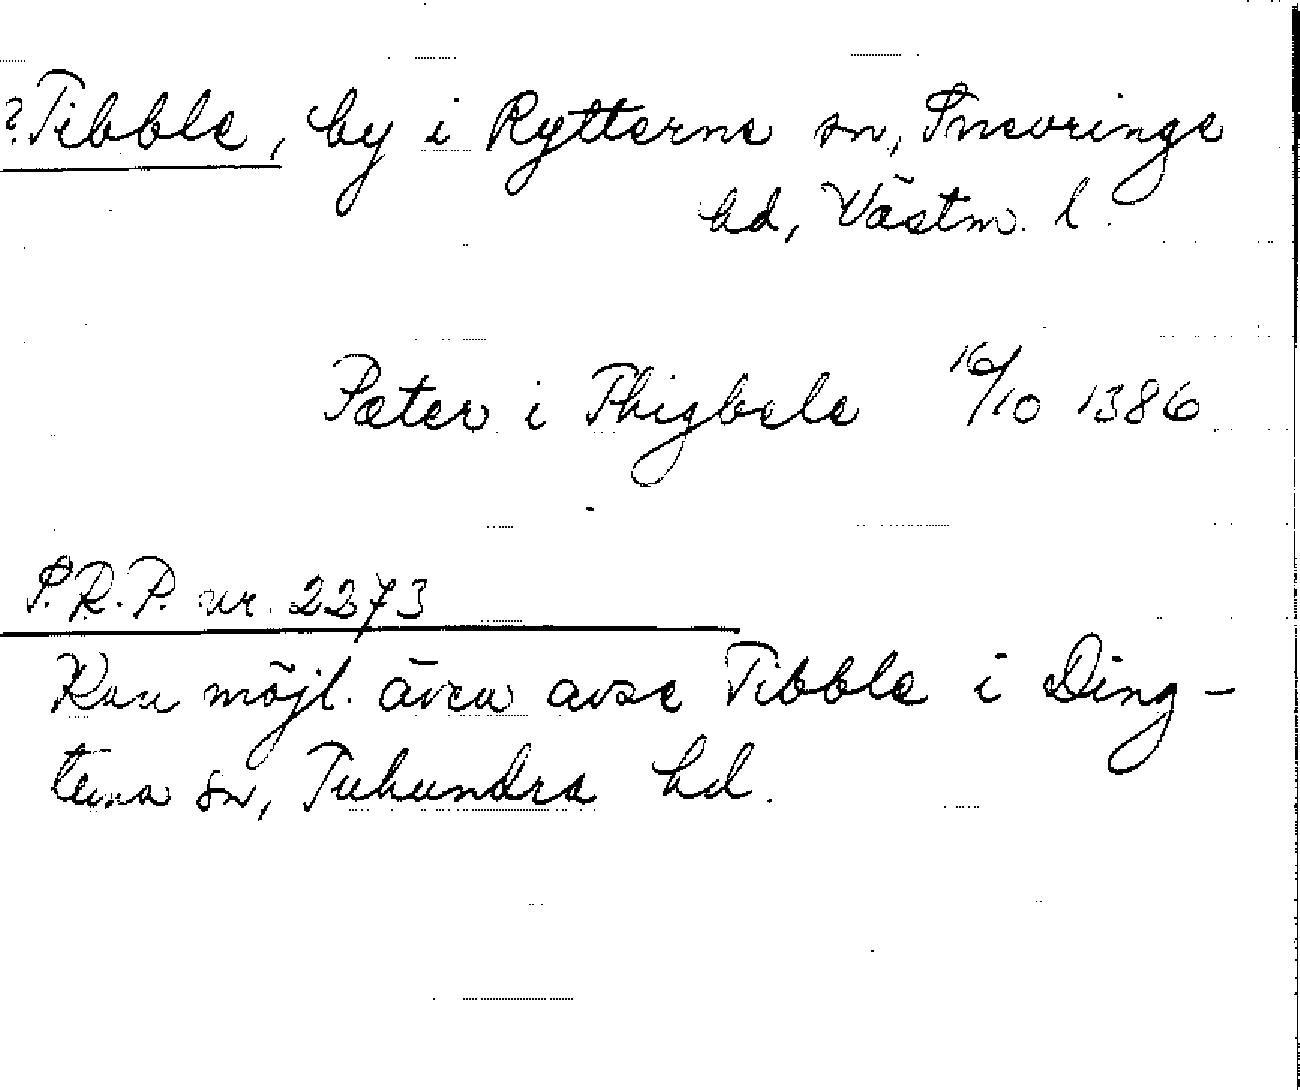 ?Tibble, by i Rytterne sn, Snevringe
hd, Västm. l.
Pæter i Thigbele 16/10 1386
S.R.P. nr. 2273
Kan möjl. även avse Tibble i Ding-
tuna sn, Tuhundra hd.